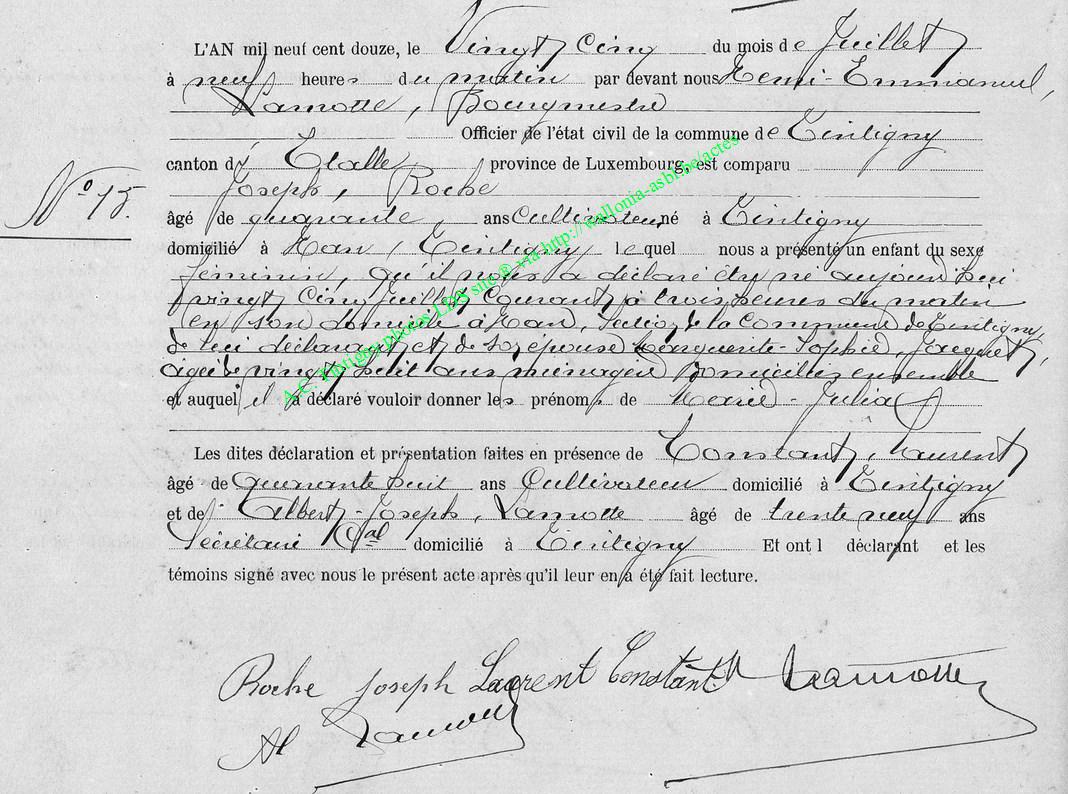 L'AN mil neuf cent douze, le Vingt Cinq du mois de Juillet
à neuf heures du matin par devant nous Henri-Emmanuel,
Lamotte, Bourgmestre
Officier de l'état civil de la commune de Tintigny
canton d' Etalle province de Luxembourg, est comparu
Joseph, Roche
N° 15.
âgé de quarante, ans Cultivateur, né à Tintigny
domicilié à Han, Tintigny, lequel nous a présenté un enfant du sexe
féminin, qu'il nous a déclaré être né aujourd'hui
vingt Cinq Juillet Courant, à trois heures du matin
en son domicile à Han, Section de la Commune de Tintigny,
de lui déclarant, et de son épouse Marguerite-Sophie, Jacquet,
âgée de vingt huit ans ménagère Domiciliés ensemble
et auquel il a déclaré vouloir donner les prénoms de Marie-Julia
Les dites déclaration et présentation faites en présence de Constant, Laurent,
âgé de Quarante huit ans Cultivateur domicilié à Tintigny
et de Albert-Joseph, Lamotte âgé de trente neuf ans
Secrétaire Cal domicilié à Tintigny Et ont l déclarant et les
témoins signé avec nous le présent acte après qu'il leur en a été fait lecture.
Roche Joseph Laurent Constant Lamotte
Al Lamotte
A.C. Tintigny photos LDS site ® via http://wallonia-asbl.be/actes